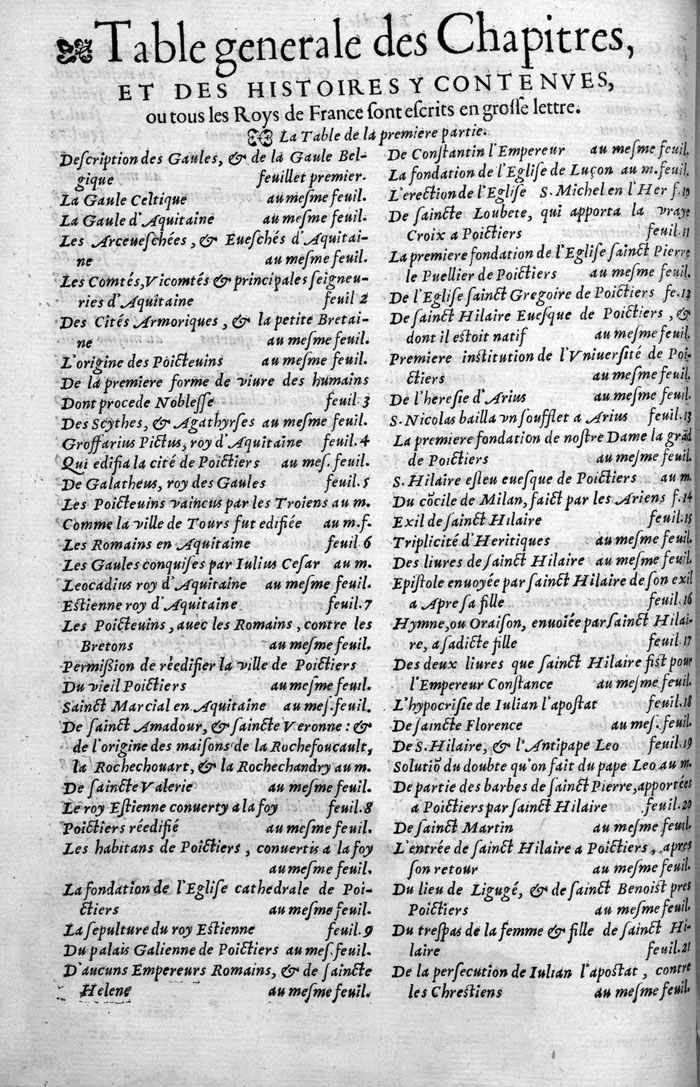 Table generale des Chapitres,
ET DES HISTOIRES Y CONTENVES,
ou tous les Roys de France ſont eſcrits en groſſe lettre.
La Table de la premiere partie.
Deſcription des Gaules, & de la Gaule Bel-
gique feuillet premier.
La Gaule Celtique au meſme feuil.
La Gaule d'Aquitaine au meſme feuil.
Les Arceueſchées, & Eueſchés d'Aquitai-
ne au meſme feuil.
Les Comtés, Vicomtés & principales ſeigneu-
ries d'Aquitaine feuil 2
Des Cités Armoriques, & la petite Bretai-
ne au meſme feuil.
L'origine des Poicteuins au meſme feuil.
De la premiere forme de viure des humains
Dont procede Nobleſſe feuil 3
Des Scythes, & Agathyrſes au meſme feuil.
Groffarius Pictus, roy d'Aquitaine feuil. 4
Qui edifia la cité de Poictiers au meſ. feuil.
De Galatheus, roy des Gaules feuil. 5
Les Poicteuins vaincus par les Troiens au m.
Comme la ville de Tours fut edifiée au m.f.
Les Romains en Aquitaine feuil 6
Les Gaules conquiſes par Iulius Ceſar au m.
Leocadius roy d'Aquitaine au meſme feuil.
Eſtienne roy d'Aquitaine feuil. 7
Les Poicteuins, auec les Romains, contre les
Bretons au meſme feuil.
Permiſſion de réedifier la ville de Poictiers
Du vieil Poictiers au meſme feuil.
Sainct Marcial en Aquitaine au meſ. feuil.
De ſainct Amadour, & ſaincte Veronne : &
de l'origine des maiſons de la Rochefoucault,
la Rochechouart, & la Rochechandry au m.
De ſaincte Valerie au meſme feuil.
Le roy Eſtienne conuerty a la foy feuil. 8
Poictiers réedifié au meſme feuil.
Les habitans de Poictiers, conuertis a la foy
au meſme feuil.
La fondation de l'Egliſe cathedrale de Poi-
ctiers au meſme feuil.
La ſepulture du roy Eſtienne feuil. 9
Du palais Galienne de Poictiers au meſ. feuil.
D'aucuns Empereurs Romains, & de ſaincte
Helene au meſme feuil.
De Conſtantin l'Empereur au meſme feuil.
La fondation de l'Egliſe de Luçon au m. feuil.
L'erection de l'Egliſe S. Michel en l'Her f. 10
De ſaincte Loubete, qui apporta la vraye
Croix a Poictiers feuil. 11
La premiere fondation de l'Egliſe ſainct Pierre
le Puellier de Poictiers au meſme feuil.
De l'Egliſe ſainct Gregoire de Poictiers fe. 12
De ſainct Hilaire Eueſque de Poictiers, &
dont il eſtoit natif au meſme feuil.
Premiere inſtitution de l'Vniuerſité de Poi-
ctiers au meſme feuil.
De l'hereſie d'Arius au meſme feuil.
S. Nicolas bailla vn ſoufflet a Arius feuil. 13
La premiere fondation de noſtre Dame la grãd
de Poictiers au meſme feuil.
S. Hilaire eſleu eueſque de Poictiers au m.
Du cõcile de Milan, faict par les Ariens f. 14
Exil de ſainct Hilaire feuil. 15
Triplicité d'Heritiques au meſme feuil.
Des liures de ſainct Hilaire au meſme feuil.
Epiſtole enuoyée par ſainct Hilaire de ſon exil
a Apre ſa fille feuil. 16
Hymne, ou Oraiſon, enuoiée par ſainct Hilai-
re, a ſadicte fille feuil. 17
Des deux liures que ſainct Hilaire fiſt pour
l'Empereur Conſtance au meſme feuil.
L'hypocriſie de Iulian l'apoſtat feuil. 18
De ſaincte Florence au meſ. feuil.
De S. Hilaire, & l'Antipape Leo feuil. 19
Solutiõ du doubte qu'on fait du pape Leo au m.
De partie des barbes de ſainct Pierre, apportées
a Poictiers par ſainct Hilaire feuil. 20
De ſainct Martin au meſme feuil.
L'entrée de ſainct Hilaire a Poictiers, apres
ſon retour au meſme feuil.
Du lieu de Ligugé, & de ſainct Benoiſt pres
Poictiers au meſme feuil.
Du treſpas de la femme & fille de ſainct Hi-
laire feuil. 21
De la perſecution de Iulian l'apoſtat, contre
les Chreſtiens au meſme feuil.